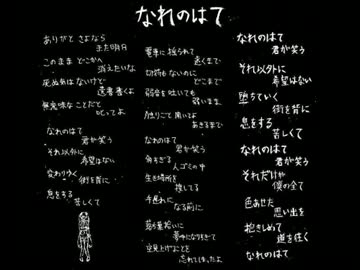 なれのはて
ありがと さよなら
また明日
このまま どこかへ
消えたいな
死ぬ気はないけど
遺書書くよ
無意味なことだと
叱ってよ
なれのはて
君が笑う
それ以外に
希望はない
変わりゆく
街を背に
息をする
苦しくて
電車に揺られて
遠くまで
切符もないのに
どこまで
弱音を吐いても
弱いまま
独りごと聞いてよ
あきるまで
なれのはて
君が笑う
角ちぎる
人ゴミの中
生きる場所を
捜してる
手遅れに
なる前に
落葉拾いに
夢中になりすぎて
空見上げることを
忘れてしまったよ
なれのはて
君が笑う
それ以外に
希望はない
堕ちていく
街を背に
息をする
苦しくて
なれのはて
君が笑う
それだけが
僕の全て
色あせた
思い出を
抱きしめて
道を往く
なれのはて